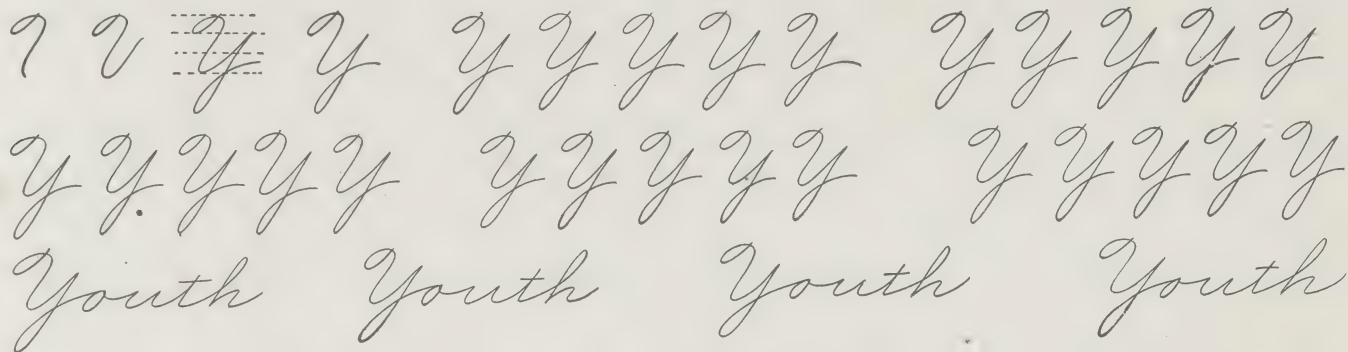 Y Y Y Y Y Y Y Y Y Y Y Y
Y Y Y Y Y Y Y Y Y Y Y Y Y Y Y
Youth Youth Youth Youth